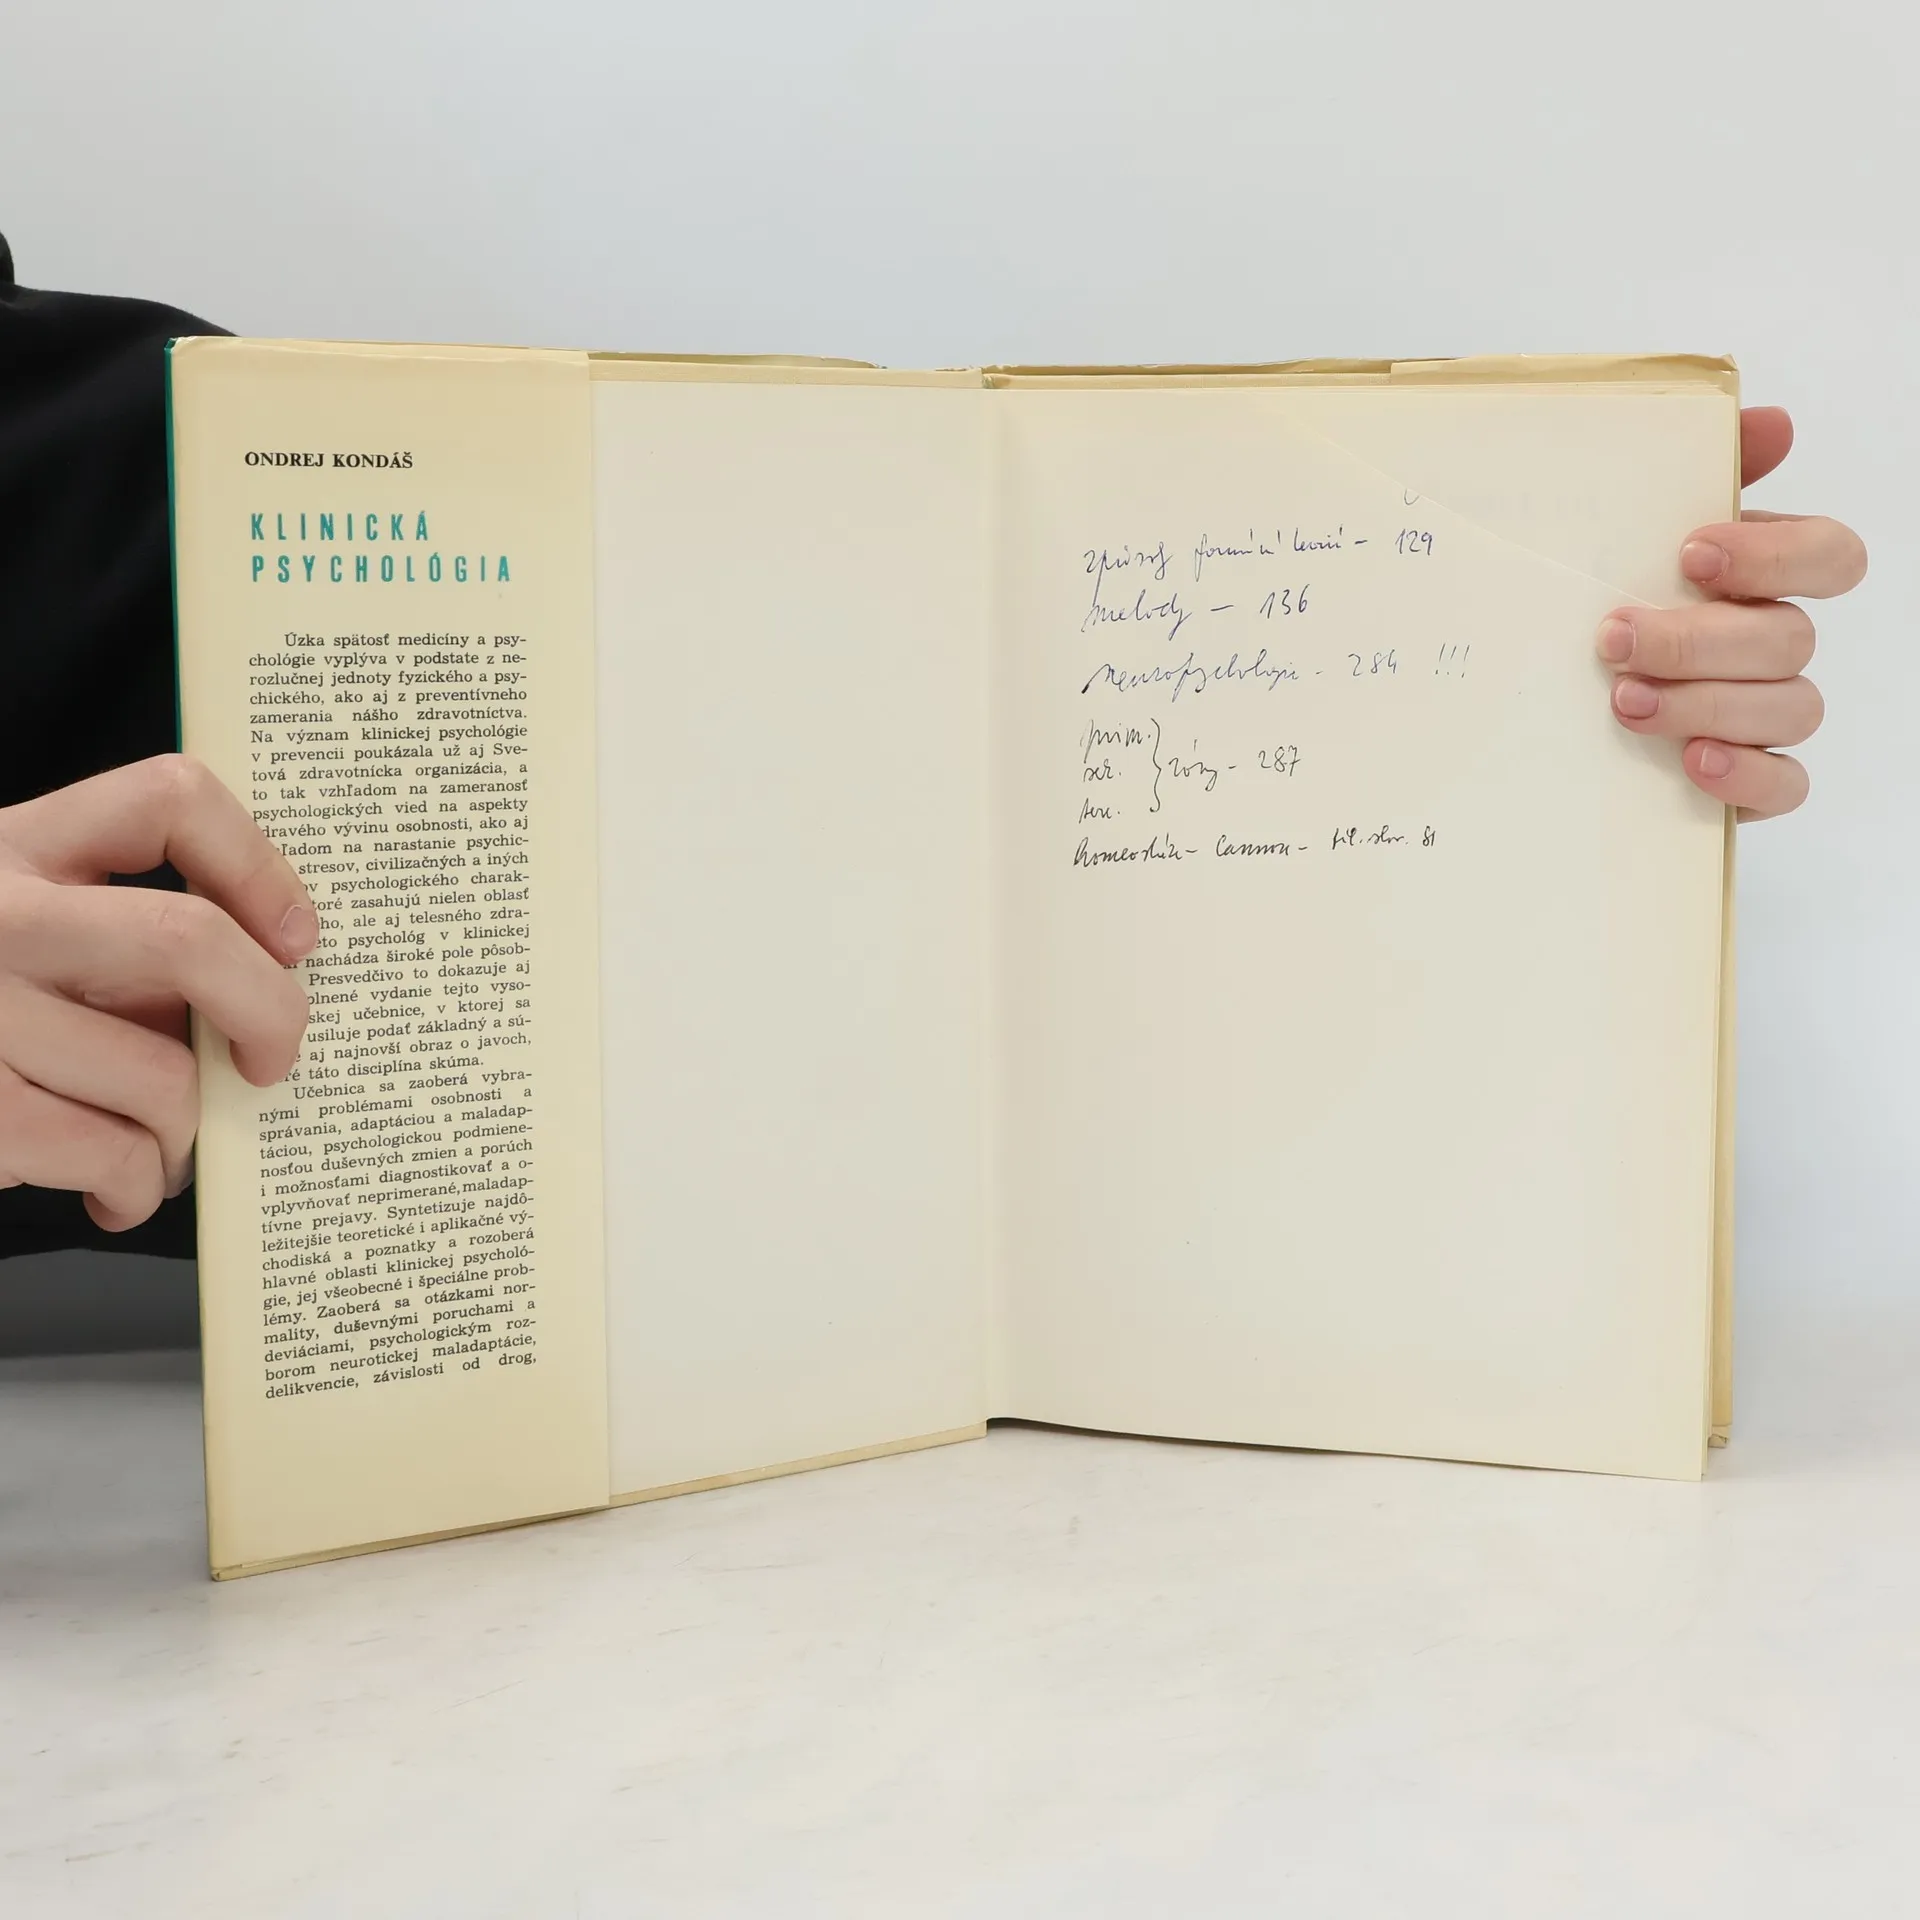 ONDREJ KONDÁŠ
KLINICKÁ
PSYCHOLÓGIA
Úzka spätosť medicíny a psy-
chológie vyplýva v podstate z ne-
rozlučnej jednoty fyzického a psy-
chického, ako aj z preventívneho
zamerania nášho zdravotníctva.
Na význam klinickej psychológie
v prevencii poukázala už aj Sve-
tová zdravotnícka organizácia, a
to tak vzhľadom na zameranosť
psychologických vied na aspekty
dravého vývinu osobnosti, ako aj
ľadom na narastanie psychic-
stresov, civilizačných a iných
ov psychologického charak-
toré zasahujú nielen oblasť
ho, ale aj telesného zdra-
eto psychológ v klinickej
nachádza široké pole pôsob-
Presvedčivo to dokazuje aj
plnené vydanie tejto vyso-
skej učebnice, v ktorej sa
usiluje podať základný a sú-
aj najnovší obraz o javoch,
ré táto disciplína skúma.
Učebnica sa zaoberá vybra-
nými problémami osobnosti a
správania, adaptáciou a maladap-
táciou, psychologickou podmiene-
nosťou duševných zmien a porúch
i možnosťami diagnostikovať a o-
vplyvňovať neprimerané, maladap-
tívne prejavy. Syntetizuje najdô-
ležitejšie teoretické i aplikačné vý-
chodiská a poznatky a rozoberá
hlavné oblasti klinickej psycholó-
gie, jej všeobecné i špeciálne prob-
lémy. Zaoberá sa otázkami nor-
mality, duševnými poruchami a
deviáciami, psychologickým roz-
borom neurotickej maladaptácie,
delikvencie, závislosti od drog,
způsob - 129
metody - 136
neuropsychologie - 284 !!!
prim.
sek. zóny - 287
terc.
Homeostáze - Cannon - fil. slov. 81